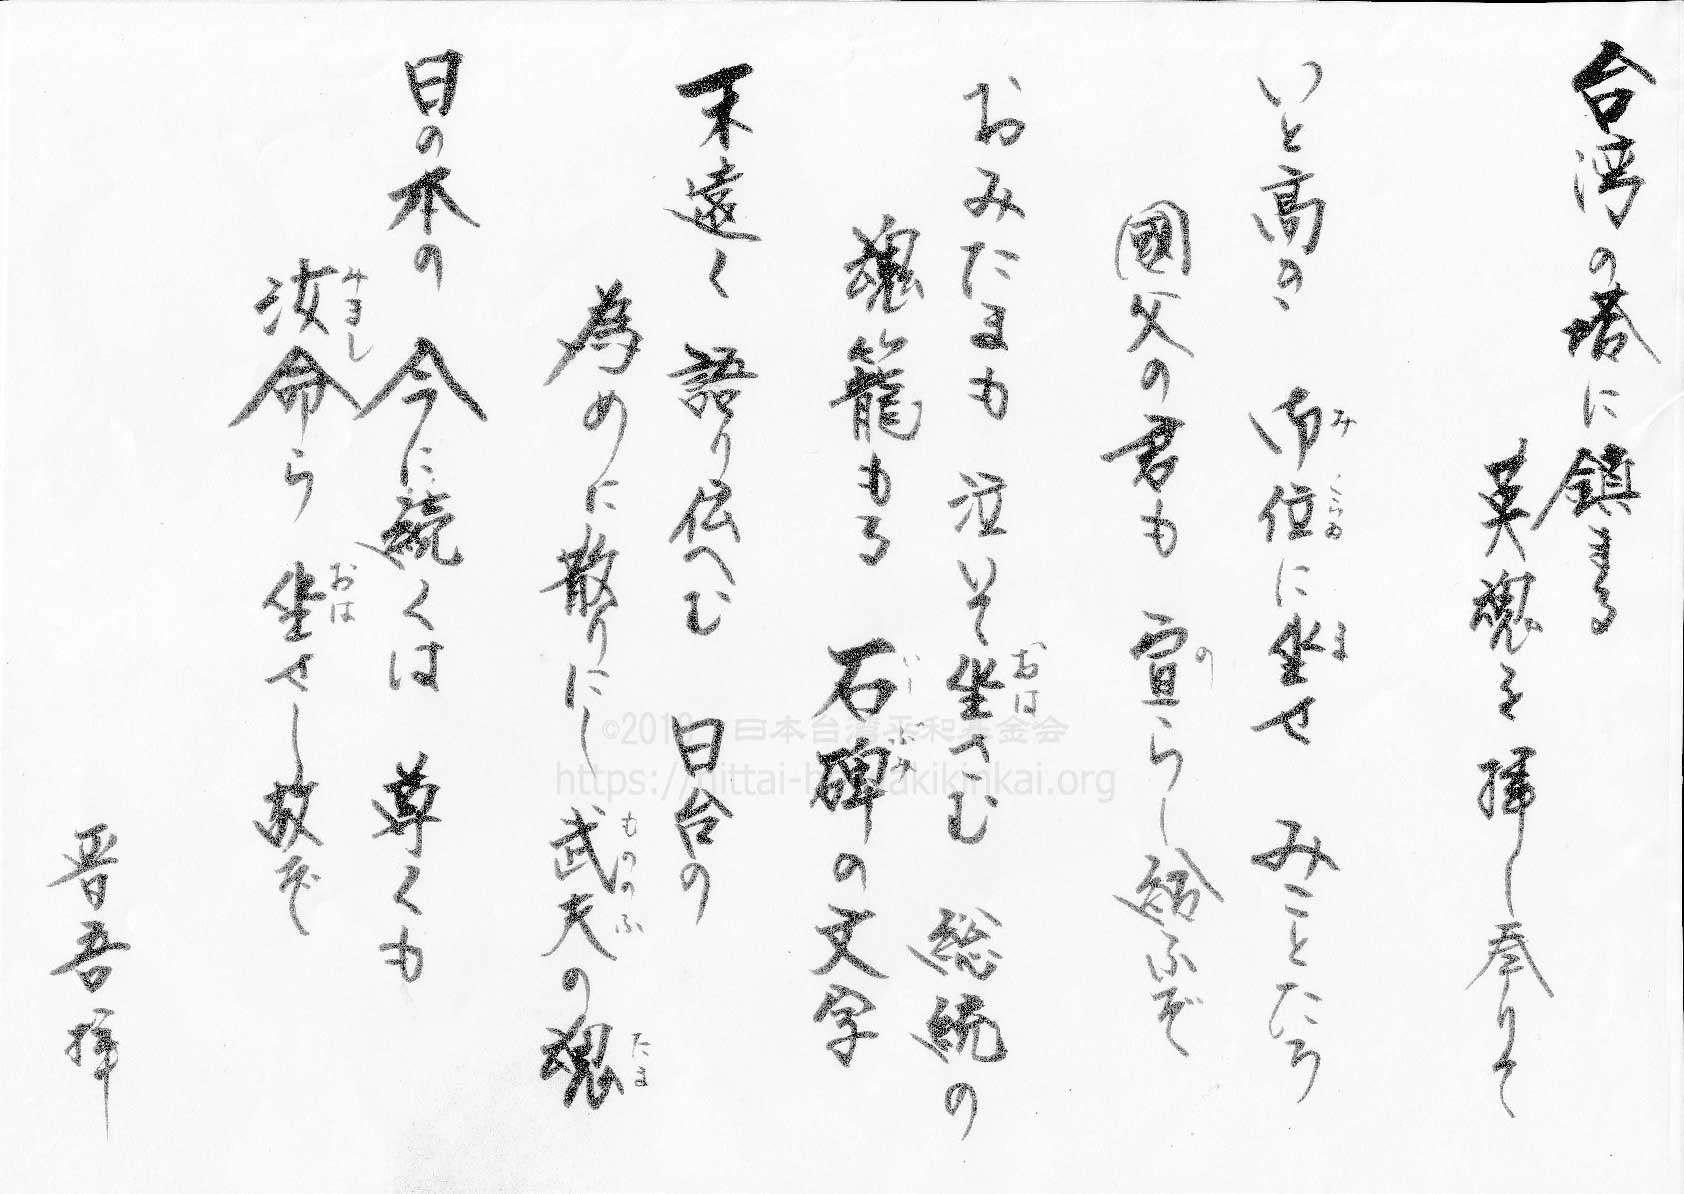 台湾の塔に鎮まる
英魂を拝し奉りて
いと高き 御位に坐せ みことたち
み くらゐ ま
國父の君も 宣らし給ふぞ
の
おみたまも 泣いて坐さむ 総統の
おは
魂籠もる 石碑の文字
いし ぶみ
末遠く 語り伝へむ 日台の
為めに散りにし 武夫の魂
もののふ たま
日の本の 今に続くは 尊くも
汝命ら 坐せし故ぞ
みまし おは
晋吾拝
©2019 日本台湾平和基金会
https://nittai-heiwakikinkai.org